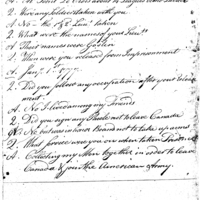 2 Were any Soldiers taken with you
A No – the Rt Lieut taken
2 What were the names of your Lieuts
A Their names were Goslin
2 When were you released from Imprisonment
A Jany 1 – 1777
2 Did you follow any occupation after your Releas
ment –
A No I lived among my Friends
2 Did you sign any Parole not to leave Canada
A No but was in hand Board not to take up arms
2 What service were you on when taken
A Collecting my Men together in order to leave
Canada & join the American Army